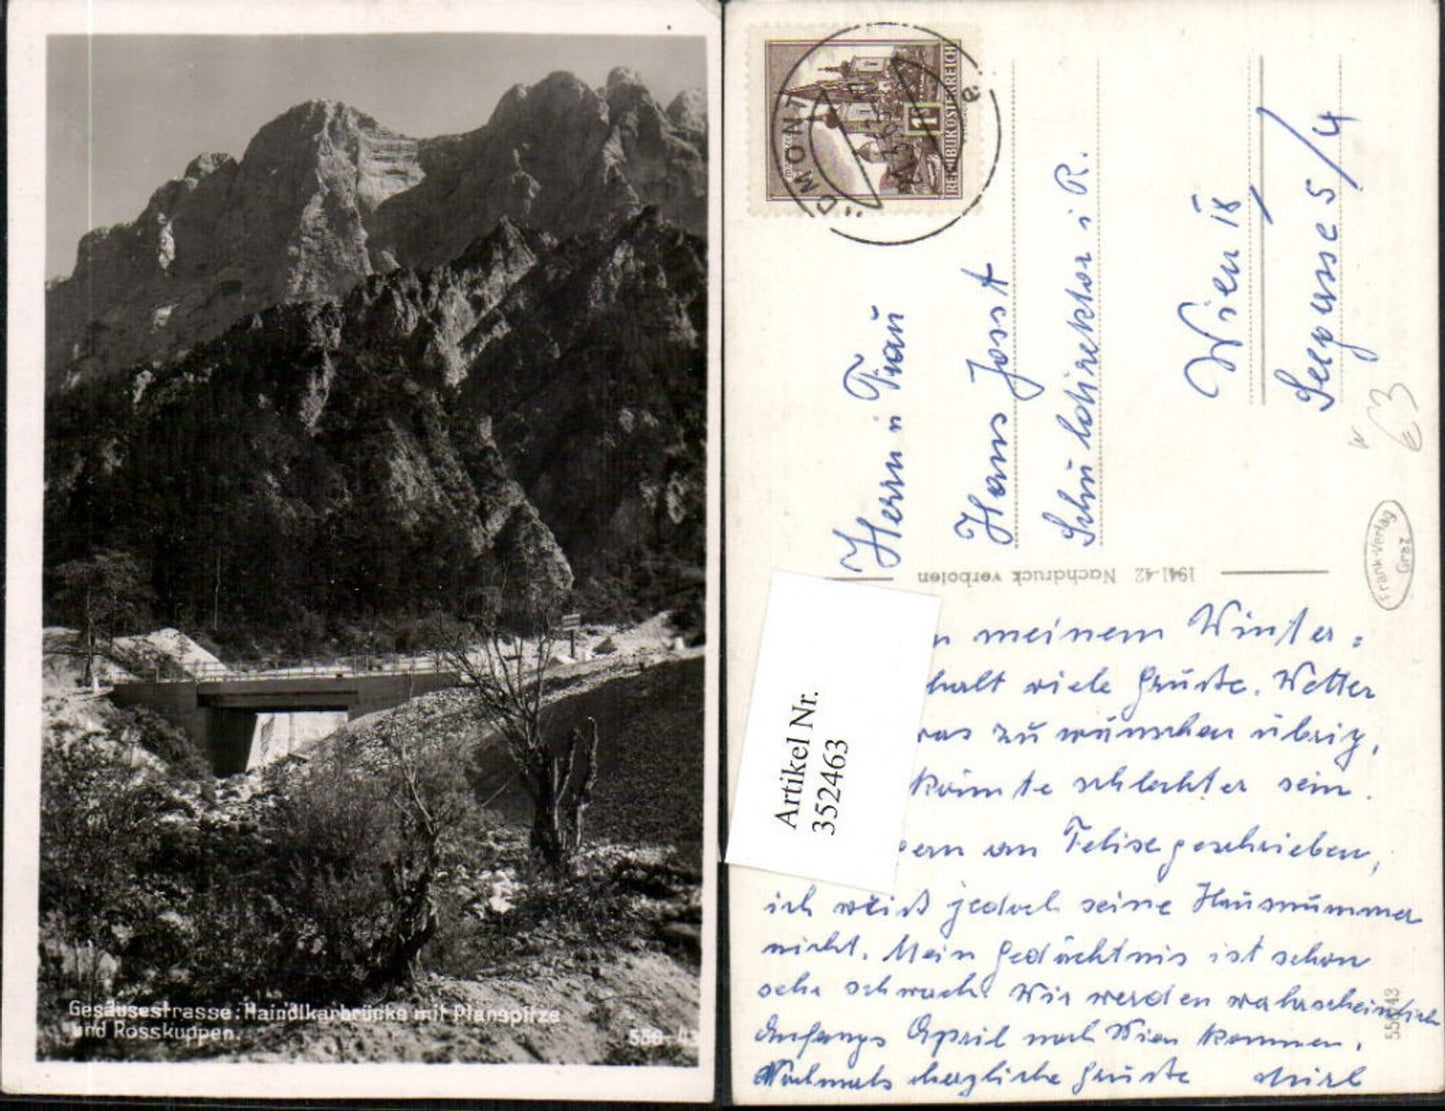 Gesäusestrasse: Haindlkarbrücke mit Planspitze
und Rosskuppen.
REPUBLIK ÖSTERREICH
Herrn u Frau
Hans Jost
Schuldirektor i R.
Wien 18
5/4
€3
1941-42 Nachdruck verboten
Frank-Verlag
Graz
Artikel Nr.
352463
meinem Winter-
halt viele Grüsse. Wetter
zu wünschen übrig,
könnte schlechter sein.
an Felise geschrieben,
ich weiß jedoch seine Hausnummer
nicht. Mein Gedächtnis ist schon
sehr schwach. Wir werden wahrscheinlich
Anfangs April nach Wien kommen.
Nochmals herzliche Grüsse